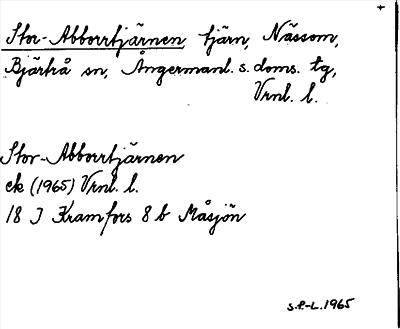 Stor-Abborrtjärnen, tjärn, Nässom,
Bjärtrå sn, Ångermanl. s. doms. tg,
Vrnl. l.
Stor-Abborrtjärnen
ek (1965) Vrnl. l.
18 J Kramfors 8 b Måsjön
S.F.-L. 1965